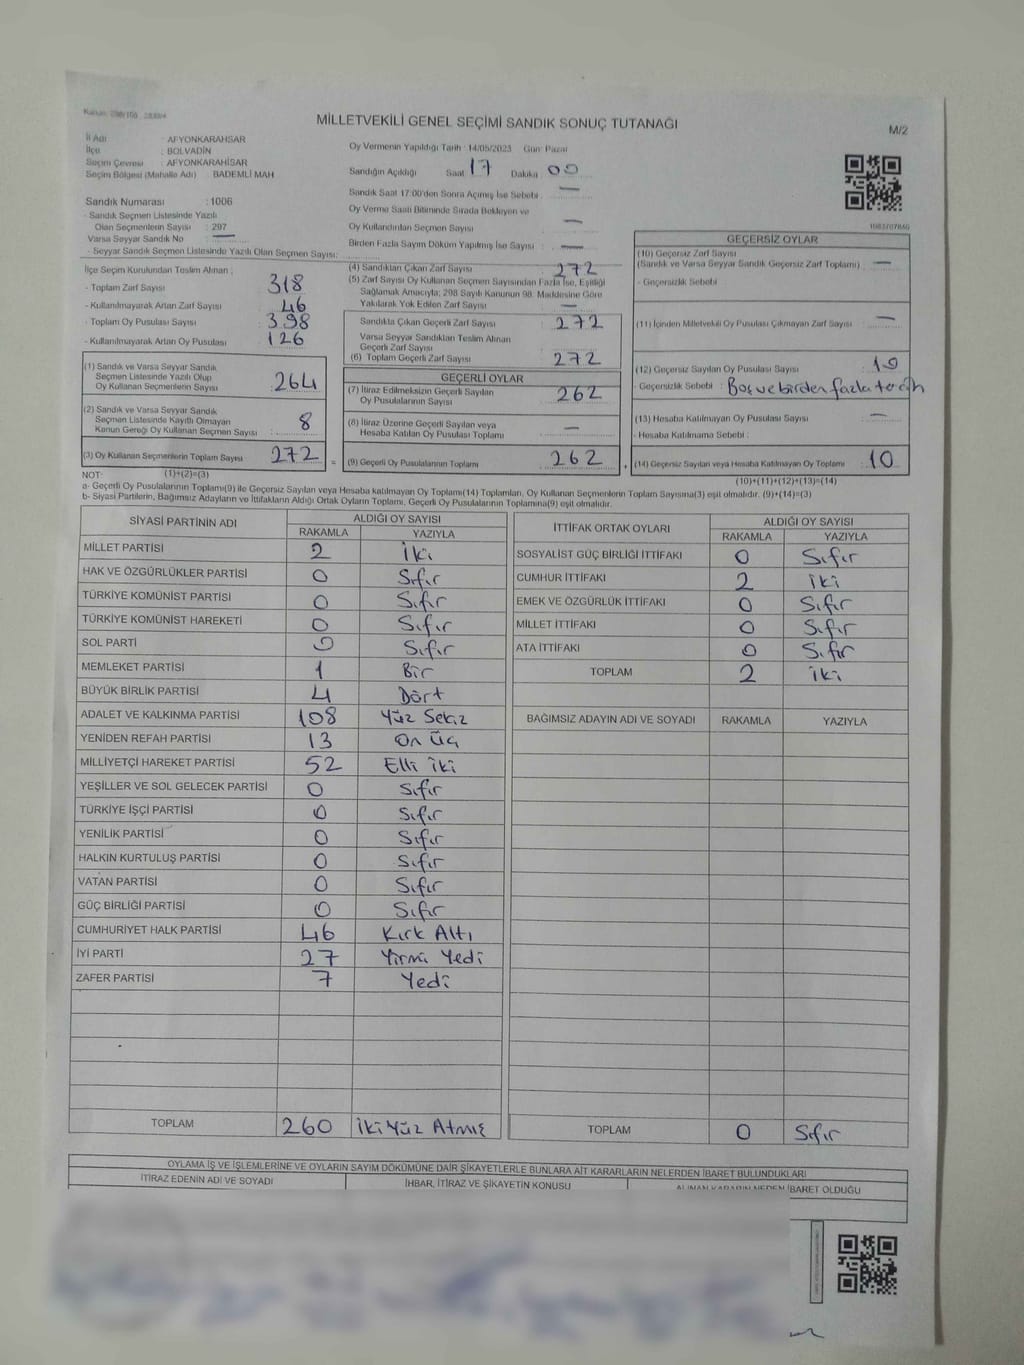 MİLLETVEKİLİ GENEL SEÇİMİ SANDIK SONUÇ TUTANAĞI
M/2
İl Adı : AFYONKARAHİSAR
İlçe : BOLVADİN
Seçim Çevresi : AFYONKARAHİSAR
Seçim Bölgesi (Mahalle Adı) : BADEMLİ MAH
Sandık Numarası : 1006
- Sandık Seçmen Listesinde Yazılı
Olan Seçmenlerin Sayısı : 297
Varsa Seyyar Sandık No —
- Seyyar Sandık Seçmen Listesinde Yazılı Olan Seçmen Sayısı:
Oy Vermenin Yapıldığı Tarih : 14/05/2023 Gün: Pazar
Sandığın Açıldığı Saat 17 Dakika 00
Sandık Saat 17:00'den Sonra Açılmış İse Sebebi : —
Oy Verme Saati Bitiminde Sırada Bekleyen ve
Oy Kullandırılan Seçmen Sayısı —
Birden Fazla Sayım Döküm Yapılmış İse Sayısı : —
İlçe Seçim Kurulundan Teslim Alınan ;
- Toplam Zarf Sayısı 318
- Kullanılmayarak Artan Zarf Sayısı 46
- Toplam Oy Pusulası Sayısı 398
- Kullanılmayarak Artan Oy Pusulası 126
(1) Sandık ve Varsa Seyyar Sandık
Seçmen Listesinde Yazılı Olup
Oy Kullanan Seçmenlerin Sayısı 264
(2) Sandık ve Varsa Seyyar Sandık
Seçmen Listesinde Kayıtlı Olmayan
Kanun Gereği Oy Kullanan Seçmen Sayısı 8
(3) Oy Kullanan Seçmenlerin Toplam Sayısı 272
(4) Sandıktan Çıkan Zarf Sayısı 272
(5) Zarf Sayısı Oy Kullanan Seçmen Sayısından Fazla İse, Eşitliği
Sağlamak Amacıyla; 298 Sayılı Kanunun 98. Maddesine Göre
Yakılarak Yok Edilen Zarf Sayısı : —
Sandıkta Çıkan Geçerli Zarf Sayısı : 272
Varsa Seyyar Sandıktan Teslim Alınan
Geçerli Zarf Sayısı
(6) Toplam Geçerli Zarf Sayısı 272
GEÇERLİ OYLAR
(7) İtiraz Edilmeksizin Geçerli Sayılan
Oy Pusulalarının Sayısı 262
(8) İtiraz Üzerine Geçerli Sayılan veya
Hesaba Katılan Oy Pusulası Toplamı —
= (9) Geçerli Oy Pusulalarının Toplamı 262
GEÇERSİZ OYLAR
(10) Geçersiz Zarf Sayısı
(Sandık ve Varsa Seyyar Sandık Geçersiz Zarf Toplamı) : —
- Geçersizlik Sebebi :
(11) İçinden Milletvekili Oy Pusulası Çıkmayan Zarf Sayısı : —
(12) Geçersiz Sayılan Oy Pusulası Sayısı 10
- Geçersizlik Sebebi : Boş ve birden fazla tercih
(13) Hesaba Katılmayan Oy Pusulası Sayısı : —
- Hesaba Katılmama Sebebi :
+ (14) Geçersiz Sayılan veya Hesaba Katılmayan Oy Toplamı 10
NOT: (1)+(2)=(3)
(10)+(11)+(12)+(13)=(14)
a- Geçerli Oy Pusulalarının Toplamı(9) ile Geçersiz Sayılan veya Hesaba katılmayan Oy Toplamı(14) Toplamları, Oy Kullanan Seçmenlerin Toplam Sayısına(3) eşit olmalıdır. (9)+(14)=(3)
b- Siyasi Partilerin, Bağımsız Adayların ve İttifakların Aldığı Ortak Oyların Toplamı, Geçerli Oy Pusulalarının Toplamına(9) eşit olmalıdır.
SİYASİ PARTİNİN ADI ALDIĞI OY SAYISI
RAKAMLA YAZIYLA
MİLLET PARTİSİ 2 İki
HAK VE ÖZGÜRLÜKLER PARTİSİ 0 Sıfır
TÜRKİYE KOMÜNİST PARTİSİ 0 Sıfır
TÜRKİYE KOMÜNİST HAREKETİ 0 Sıfır
SOL PARTİ 0 Sıfır
MEMLEKET PARTİSİ 1 Bir
BÜYÜK BİRLİK PARTİSİ 4 Dört
ADALET VE KALKINMA PARTİSİ 108 Yüz Sekiz
YENİDEN REFAH PARTİSİ 13 On Üç
MİLLİYETÇİ HAREKET PARTİSİ 52 Elli iki
YEŞİLLER VE SOL GELECEK PARTİSİ 0 Sıfır
TÜRKİYE İŞÇİ PARTİSİ 0 Sıfır
YENİLİK PARTİSİ 0 Sıfır
HALKIN KURTULUŞ PARTİSİ 0 Sıfır
VATAN PARTİSİ 0 Sıfır
GÜÇ BİRLİĞİ PARTİSİ 0 Sıfır
CUMHURİYET HALK PARTİSİ 46 Kırk Altı
İYİ PARTİ 27 Yirmi Yedi
ZAFER PARTİSİ 7 Yedi
TOPLAM 260 İki Yüz Atmış
İTTİFAK ORTAK OYLARI ALDIĞI OY SAYISI
RAKAMLA YAZIYLA
SOSYALİST GÜÇ BİRLİĞİ İTTİFAKI 0 Sıfır
CUMHUR İTTİFAKI 2 iki
EMEK VE ÖZGÜRLÜK İTTİFAKI 0 Sıfır
MİLLET İTTİFAKI 0 Sıfır
ATA İTTİFAKI 0 Sıfır
TOPLAM 2 iki
BAĞIMSIZ ADAYIN ADI VE SOYADI RAKAMLA YAZIYLA
TOPLAM 0 Sıfır
OYLAMA İŞ VE İŞLEMLERİNE VE OYLARIN SAYIM DÖKÜMÜNE DAİR ŞİKAYETLERLE BUNLARA AİT KARARLARIN NELERDEN İBARET BULUNDUKLARI
İTİRAZ EDENİN ADI VE SOYADI İHBAR, İTİRAZ VE ŞİKAYETİN KONUSU ALINAN KARARIN NEDEN İBARET OLDUĞU